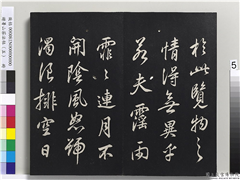 於此覽物之
情得無異乎
若夫霪雨
霏〻連月不
開陰風怒號
濁浪排空日
5